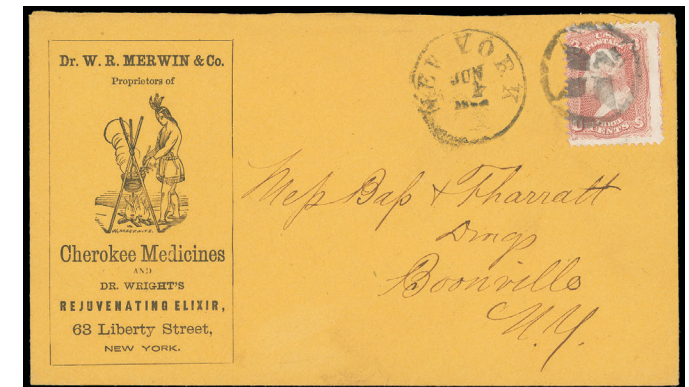 Dr. W. R. MERWIN & Co.
Proprietors of
Cherokee Medicines
AND
DR. WRIGHT'S
REJUVENATING ELIXIR,
63 Liberty Street,
NEW YORK.
NEW YORK
JUN
4
U.S.
POSTAGE
THREE
CENTS
Mess Bass & Tharratt
Drugs
Boonville
N.Y.